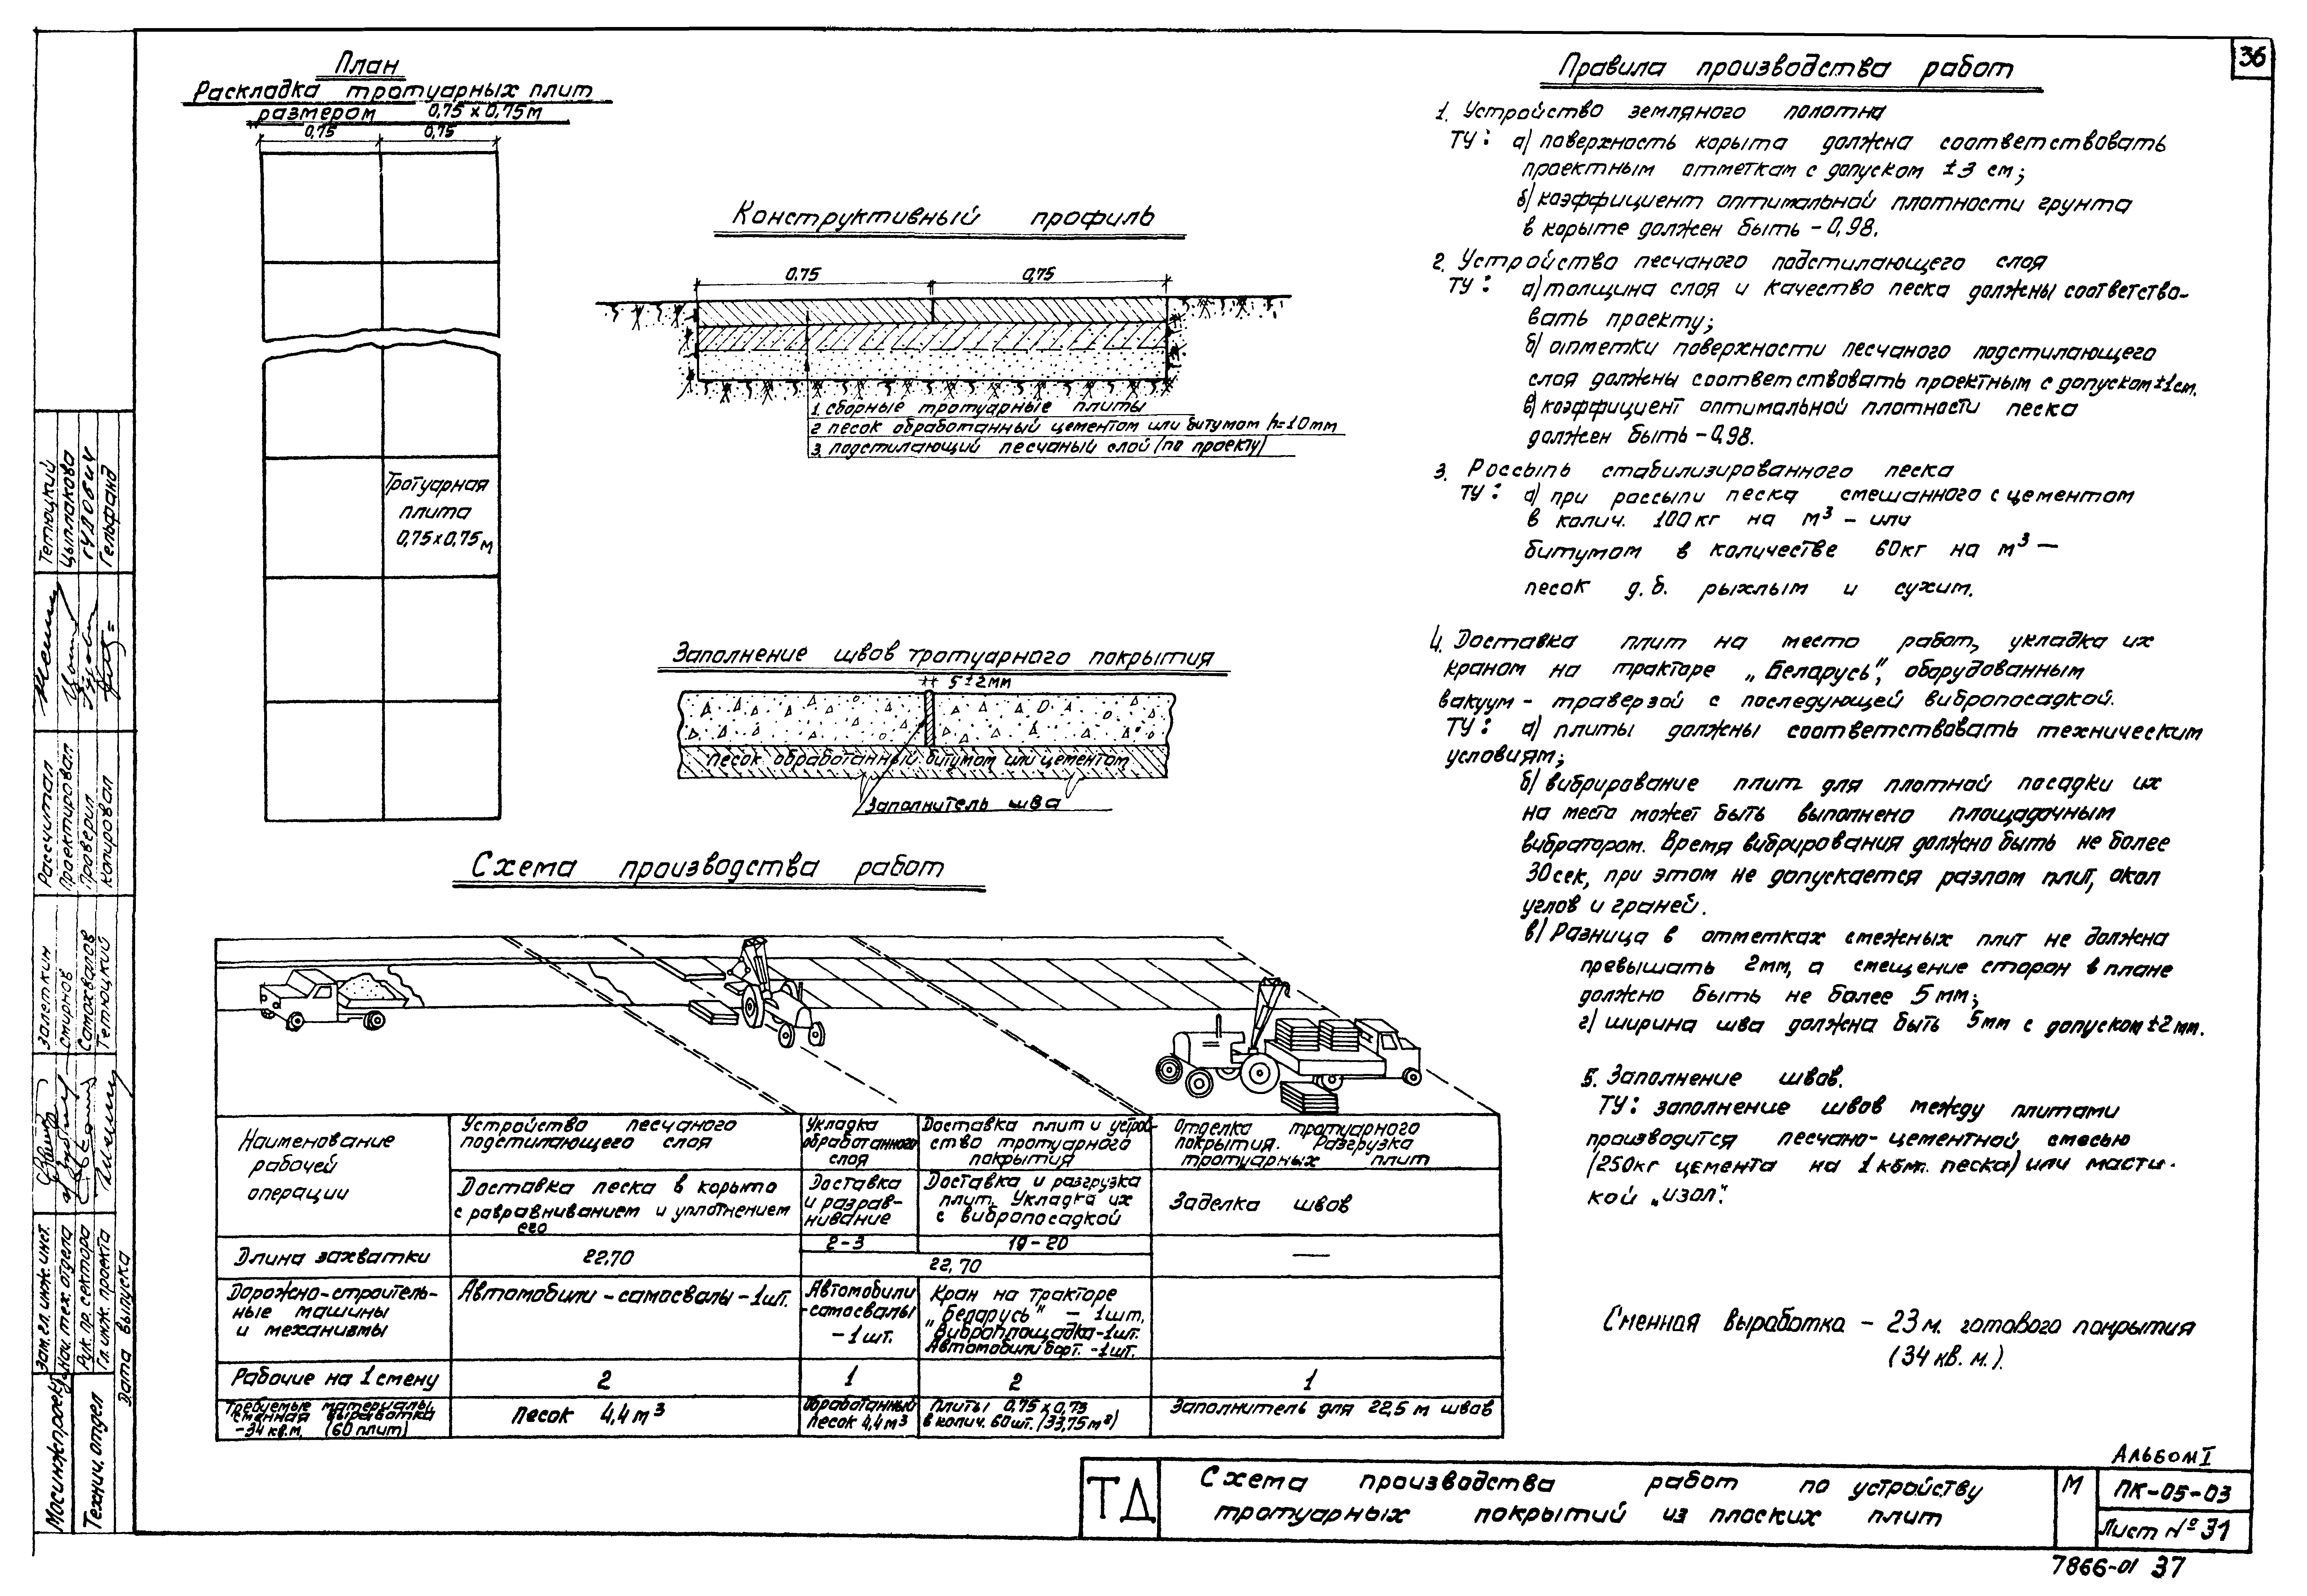 36
План
Раскладка тротуарных плит
размером 0,75 х 0,75 м
0,75 0,75
Тротуарная
плита
0,75х0,75м
Конструктивный профиль
0.75 0,75
1. сборные тротуарные плиты
2 песок обработанный цементом или битумом h=10мм
3. подстилающий песчаный слой (по проекту)
Заполнение швов тротуарного покрытия
5±2мм
песок обработанный битумом или цементом
Заполнитель шва
Правила производства работ
1. Устройство земляного полотна
ТУ: а) поверхность корыта должна соответствовать
проектным отметкам с допуском ±3 см;
б) коэффициент оптимальной плотности грунта
в корыте должен быть – 0,98.
2. Устройство песчаного подстилающего слоя
ТУ: а) толщина слоя и качество песка должны соответство-
вать проекту;
б) отметки поверхности песчаного подстилающего
слоя должны соответствовать проектным с допуском ±1см.
в) коэффициент оптимальной плотности песка
должен быть – 0,98.
3. Россыпь стабилизированного песка
ТУ: а) при рассыпи песка смешанного с цементом
в колич. 100 кг на м³ – или
битумом в количестве 60кг на м³ —
песок д.б. рыхлым и сухим.
4. Доставка плит на место работ, укладка их
краном на тракторе „Беларусь", оборудованным
вакуум – траверзой с последующей вибропосадкой.
ТУ: а) плиты должны соответствовать техническим
условиям;
б) вибрирование плит для плотной посадки их
на место может быть выполнено площадочным
вибратором. Время вибрирования должно быть не более
30 сек, при этом не допускается разлом плит, окол
углов и граней.
в) Разница в отметках смежных плит не должна
превышать 2мм, а смещение сторон в плане
должно быть не более 5 мм;
г) ширина шва должна быть 5мм с допуском ±2 мм.
5. Заполнение швов.
ТУ: заполнение швов между плитами
производится песчано-цементной смесью
(250кг цемента на 1 кбм. песка) или масти-
кой „изол".
Сменная выработка – 23 м. готового покрытия
(34 кв. м.).
Схема производства работ
Наименование
рабочей
операции
Устройство песчаного
подстилающего слоя
Укладка
обработанного
слоя
Доставка плит и устрой-
ство тротуарного
покрытия
Отделка тротуарного
покрытия. Разгрузка
тротуарных плит
Доставка песка в корыто
с равравниванием и уплотнением
его
Доставка
и разрав-
нивание
Доставка и разгрузка
плит. Укладка их
с вибропосадкой
Заделка швов
Длина захватки
22,70
2-3
19-20
22,70
—
Дорожно-строитель-
ные машины
и механизмы
Автомобили – самосвалы – 1шт.
Автомобили
-самосвалы
– 1 шт.
Кран на тракторе
„Беларусь" – 1шт.
Виброплощадка-1шт.
Автомобили борт. -1шт.
Рабочие на 1 смену
2
1
2
1
Требуемые материалы,
сменная выработка
-34 кв.м. (60 плит)
Песок 4,4 м³
Обработанный
песок 4,4м³
Плиты 0,75 х 0,75
в колич. 60 шт. (33,75 м²)
Заполнитель для 22,5 м швов
Альбом I
ТД
Схема производства работ по устройству
тротуарных покрытий из плоских плит
М
ПК-05-03
Лист № 31
7866-01 37
Мосинжпроект
Технич. отдел
Зам. гл. инж. инст.
Нач. тех. отдела
Рук. пр. сектора
Гл. инж. проекта
Дата выпуска
Залеткин
Смирнов
Самохвалов
Тетюцкий
Рассчитал
Проектировал
Проверил
Копировал
Тетюцкий
Цыплакова
Гудович
Гельфанд